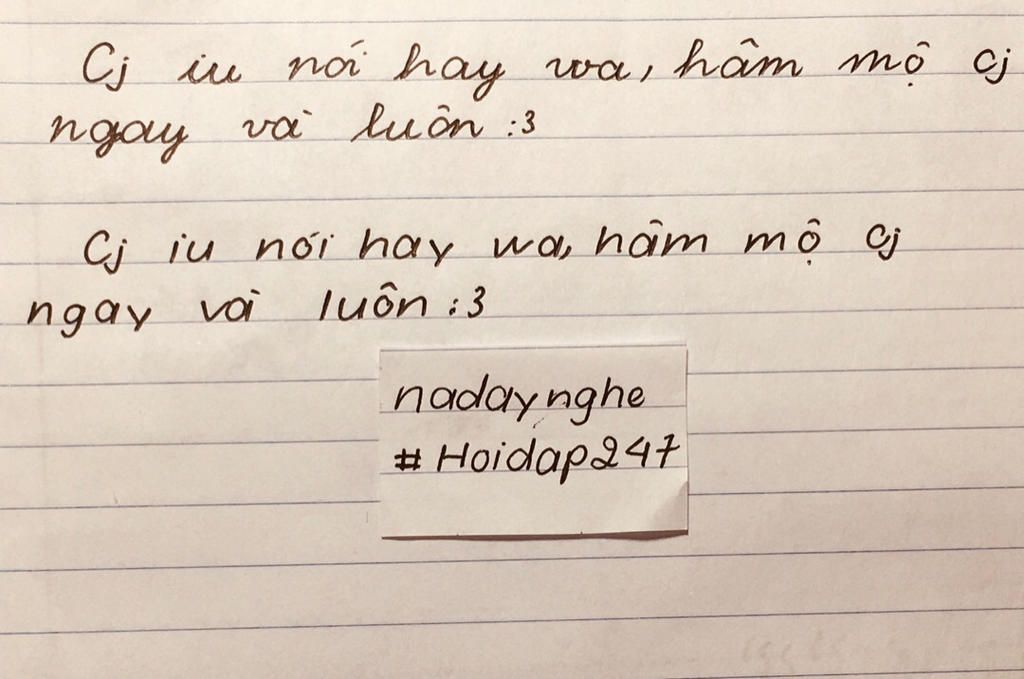 Cj iu nói hay wa, hâm mộ cj
ngay và luôn :3
Cj iu nói hay wa, hâm mộ cj
ngay và luôn :3
nadaynghe
#Hoidap247